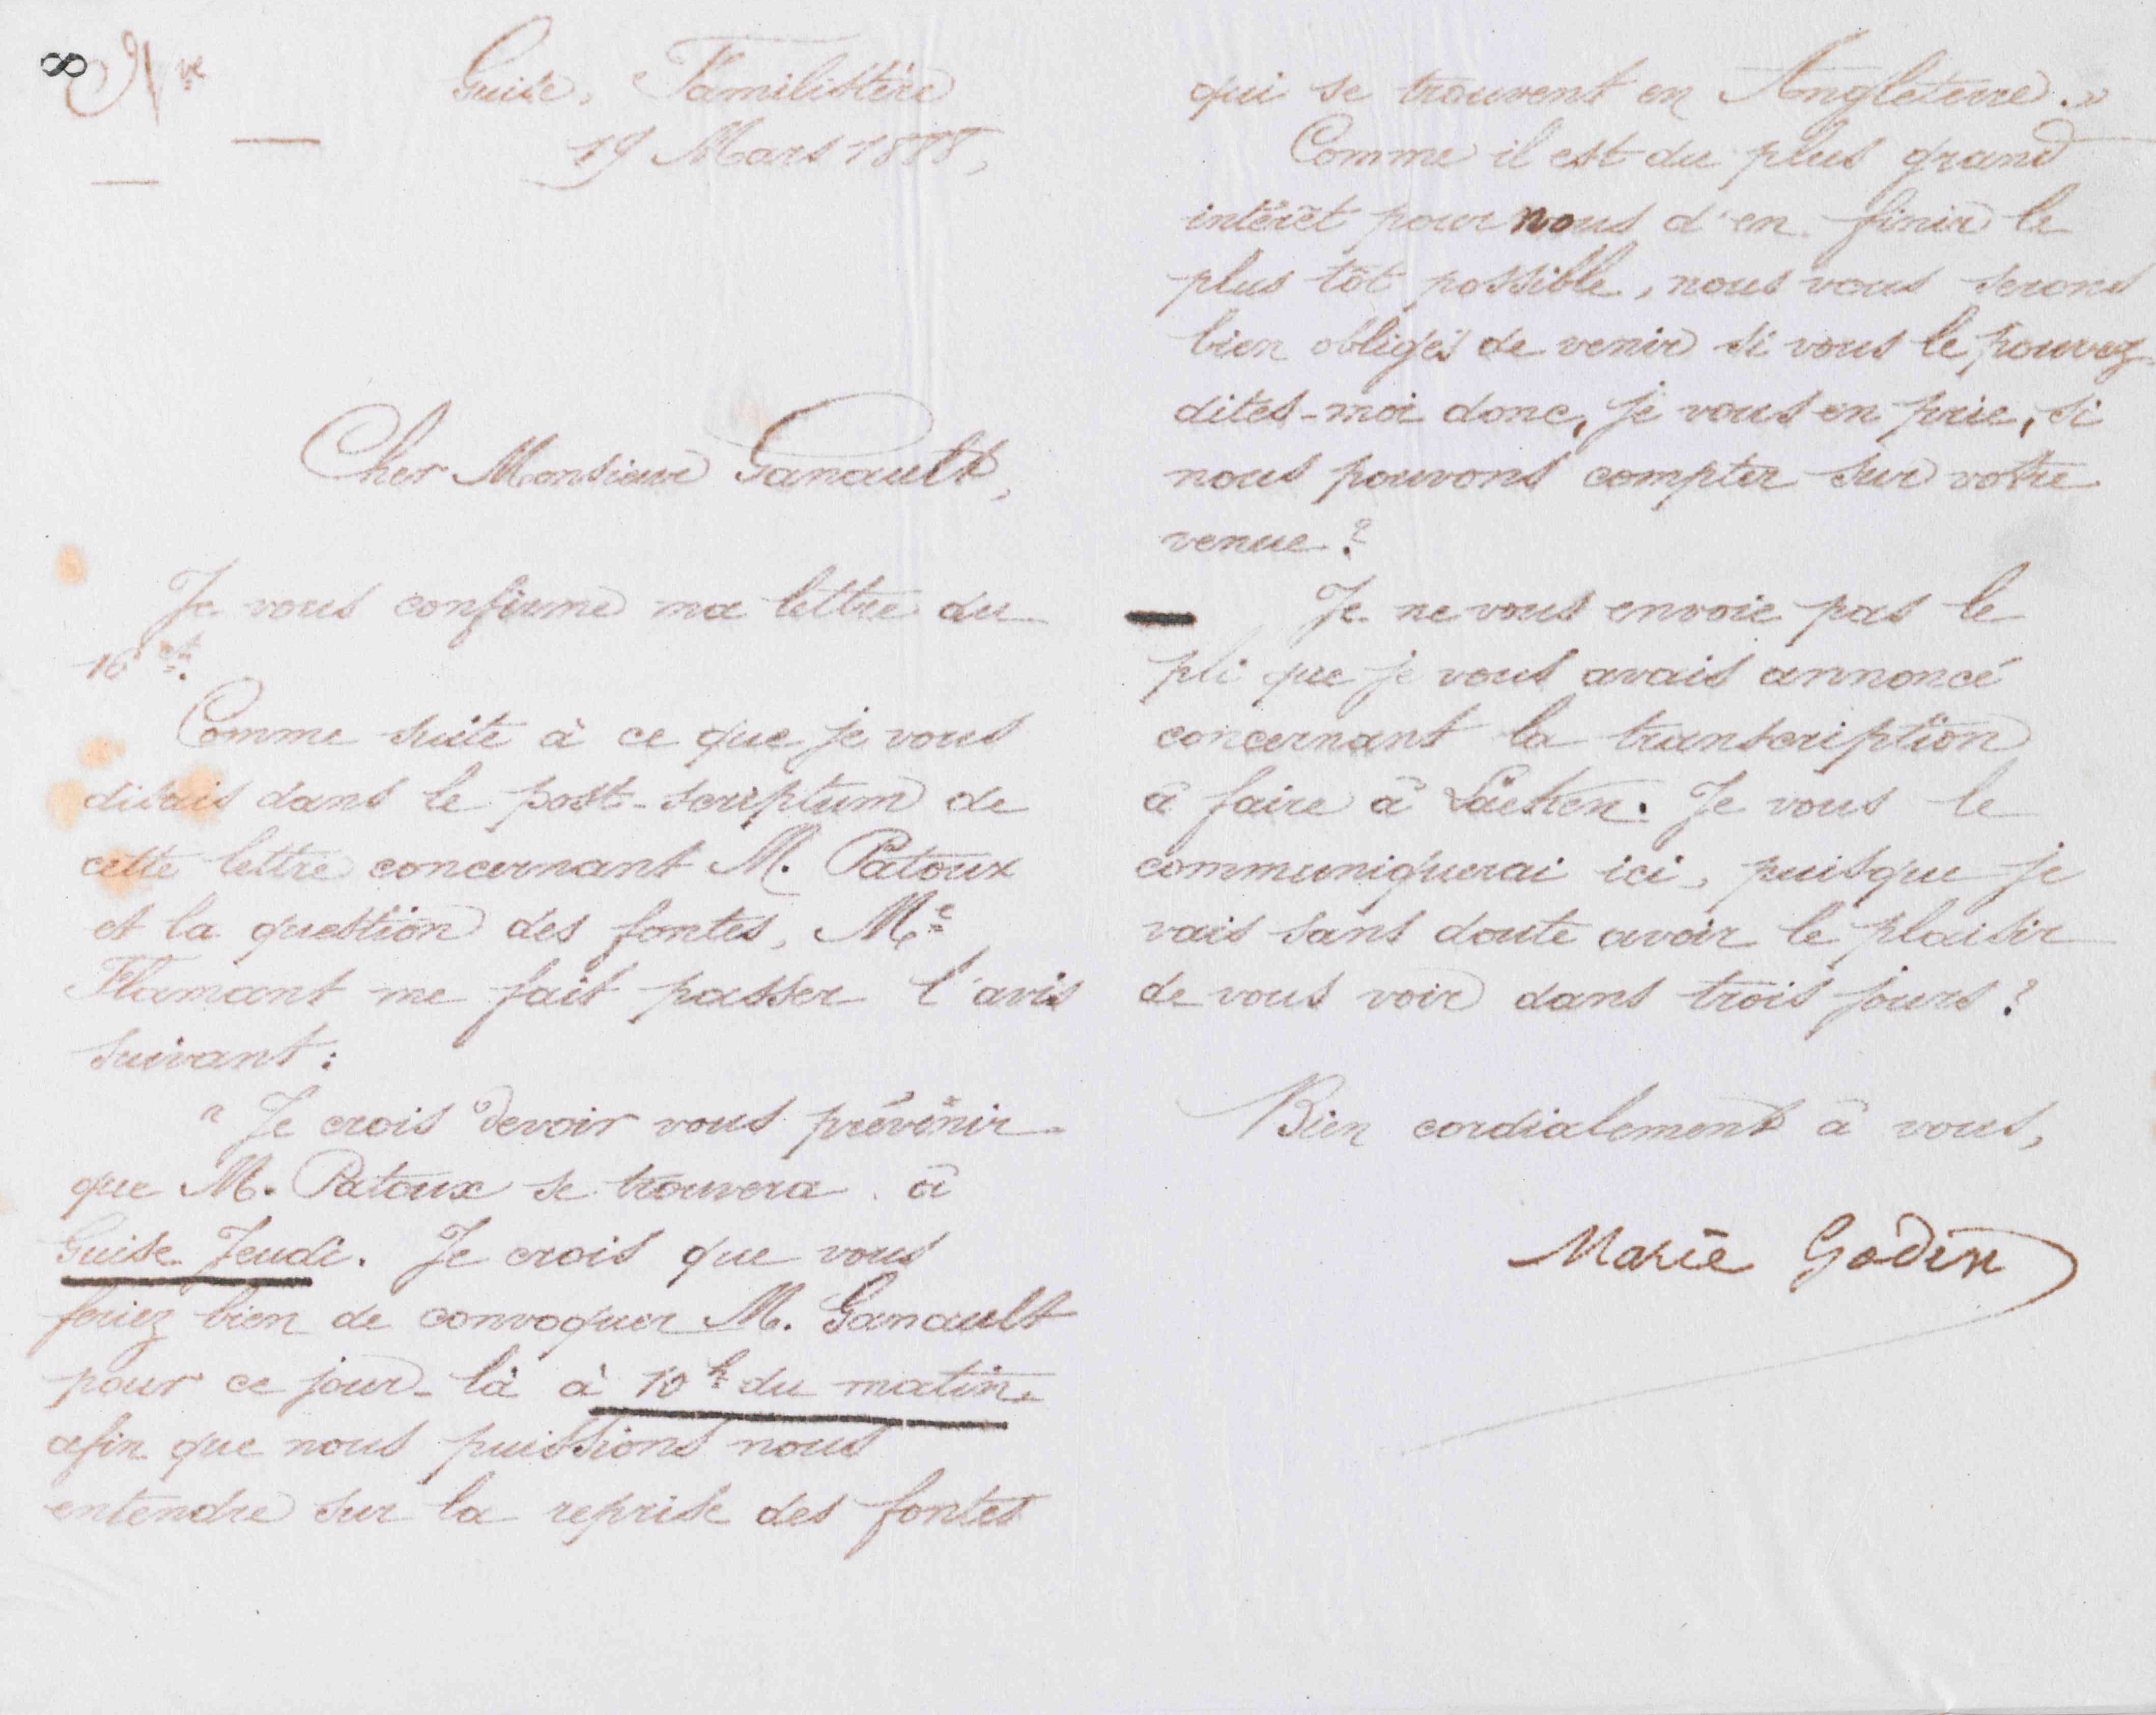 8
Nre
Guise, Familistère
19 Mars 1888,
Cher Monsieur Ganault,
Je vous confirme ma lettre du
16 ct.
Comme suite à ce que je vous
disais dans le post-scriptum de
cette lettre concernant M. Patoux
et la question des fontes, Me
Flamant me fait passer l'avis
suivant :
" Je crois devoir vous prévenir
que M. Patoux se trouvera à
Guise Jeudi. Je crois que vous
feriez bien de convoquer M. Ganault
pour ce jour-là à 10 h du matin
afin que nous puissions nous
entendre sur la reprise des fontes
qui se trouvent en Angleterre. »
Comme il est du plus grand
intérêt pour nous d'en finir le
plus tôt possible, nous vous serons
bien obligés de venir si vous le pouvez
dites-moi donc, je vous en prie, si
nous pouvons compter sur votre
venue ?
Je ne vous envoie pas le
pli que je vous avais annoncé
concernant la transcription
à faire à Laeken. Je vous le
communiquerai ici, puisque je
vais sans doute avoir le plaisir
de vous voir dans trois jours ?
Bien cordialement à vous,
Marie Godin